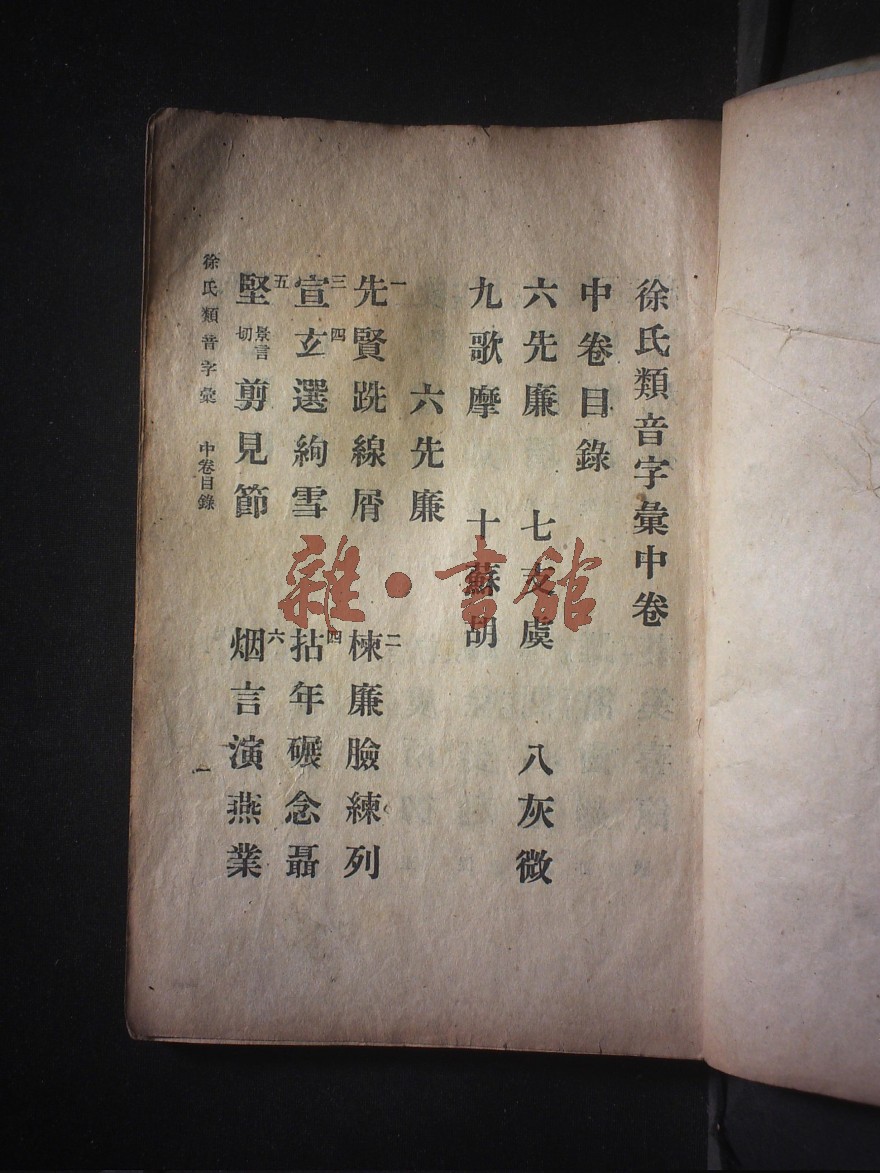 徐氏類音字彙中卷
中卷目錄
六先廉 七支虞 八灰微
九歌摩 十蘇胡
六先廉
一先賢跣線屑 二楝廉臉練列
三宣玄選絢雪 四拈年碾念聶
五堅景言切剪見節 六烟言演燕業
徐氏類音字彙 中卷目錄 一
雜·書館